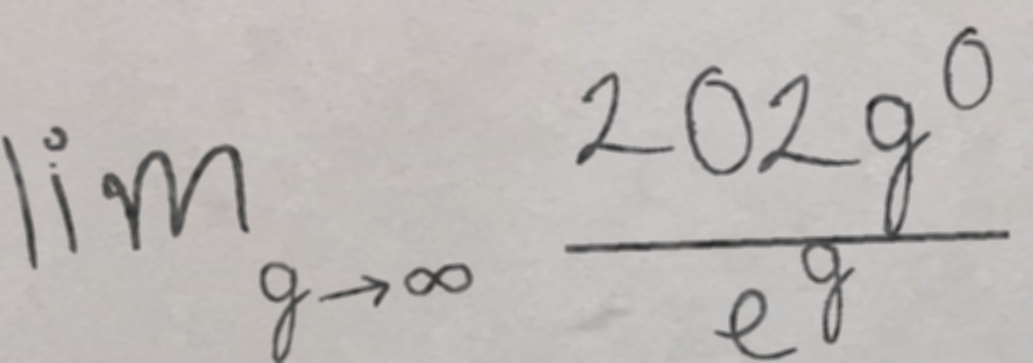 lim_{g→∞} \frac{202g^0}{e^g}